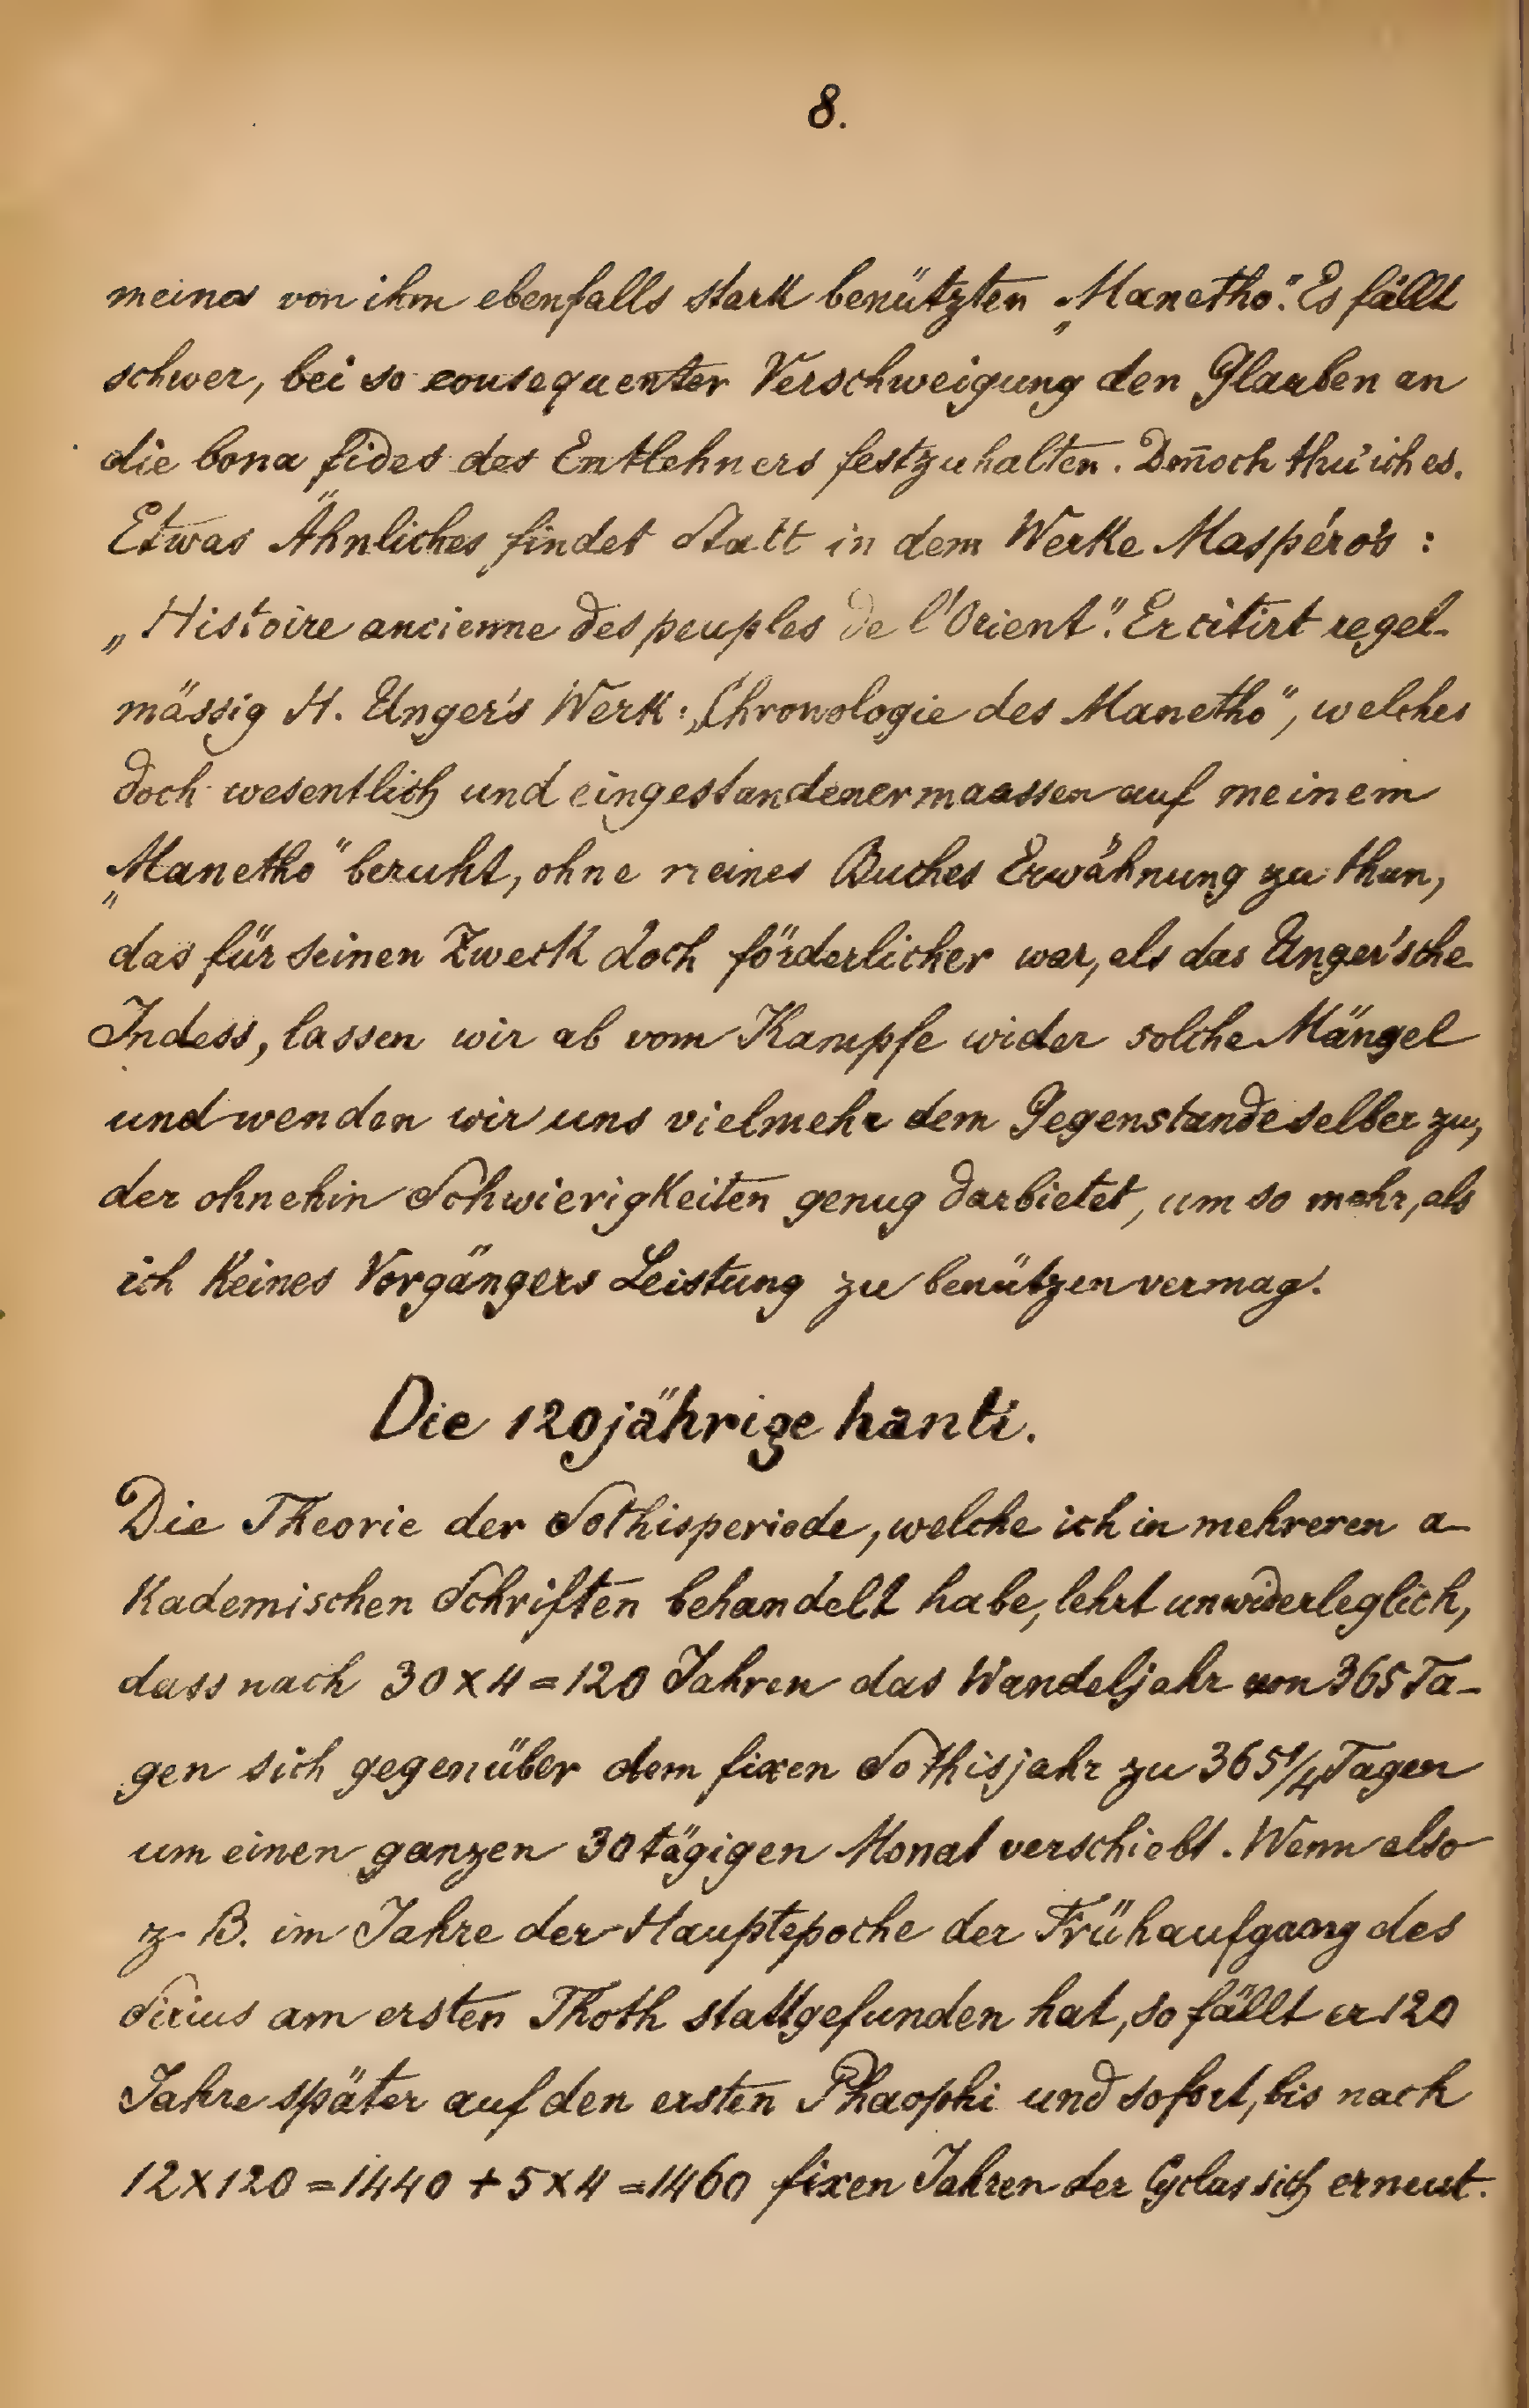 8.
meines von ihm ebenfalls stark benützten „Manetho“. Es fällt
schwer, bei so consequenter Verschweigung den Glauben an
die bona fides des Entlehners festzuhalten. Deñoch thu' ich es.
Etwas Ähnliches findet Statt in dem Werke Maspéro's :
„Histoire ancienne des peuples de l'Orient“. Er citirt regel-
mässig H. Unger's Werk: „Chronologie des Manetho“, welches
doch wesentlich und eingestandenermaassen auf meinem
„Manetho“ beruht, ohne meines Buches Erwähnung zu thun,
das für seinen Zweck doch förderlicher war, als das Unger'sche
Indess, lassen wir ab vom Kampfe wider solche Mängel
und wenden wir uns vielmehr dem Gegenstande selber zu,
der ohnehin Schwierigkeiten genug darbietet, um so mehr, als
ich keines Vorgängers Leistung zu benützen vermag.
Die 120jährige hanti.
Die Theorie der Sothisperiode, welche ich in mehreren a-
kademischen Schriften behandelt habe, lehrt unwiderleglich,
dass nach 30 x 4 = 120 Jahren das Wandeljahr von 365 Ta-
gen sich gegenüber dem fixen Sothisjahr zu 365 1/4 Tagen
um einen ganzen 30tägigen Monat verschiebt. Wenn also
z. B. im Jahre der Hauptepoche der Frühaufgang des
Sirius am ersten Thoth stattgefunden hat, so fällt er 120
Jahre später auf den ersten Phaophi und sofort, bis nach
12 x 120 = 1440 + 5 x 4 = 1460 fixen Jahren der Cyclus sich erneut.